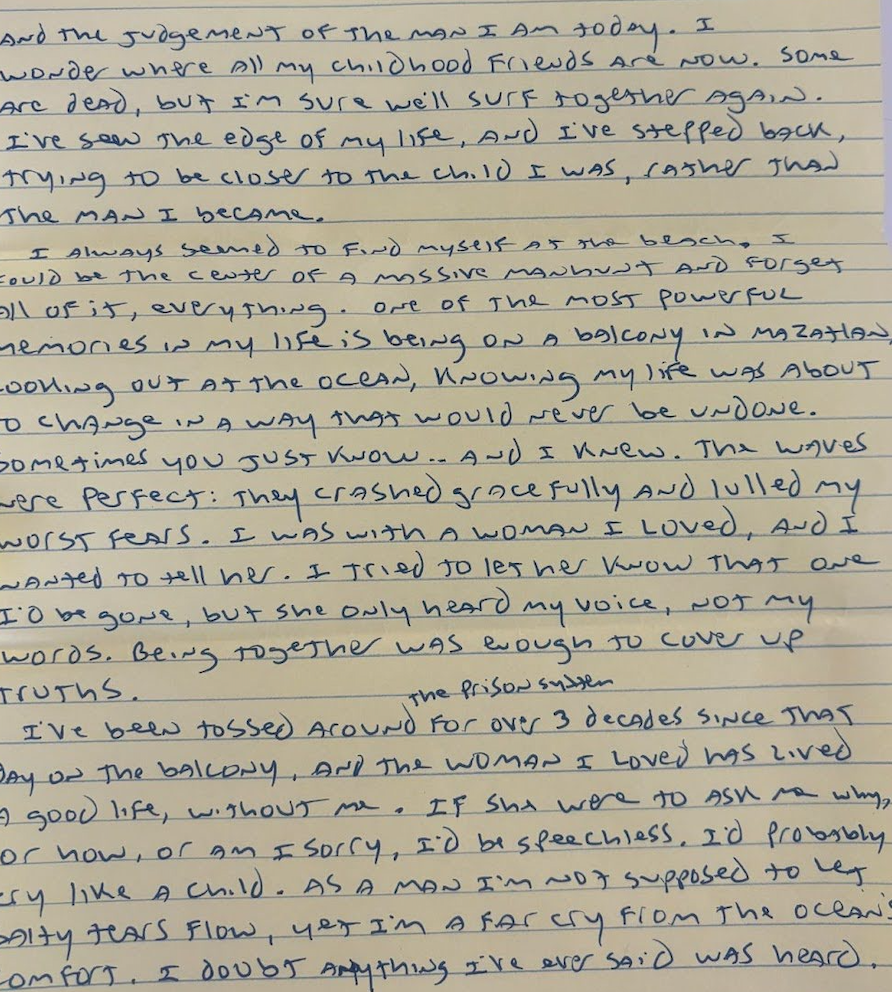 And the judgement of the man I am today. I
wonder where all my childhood friends are now. Some
are dead, but I'm sure we'll surf together again.
I've seen the edge of my life, and I've stepped back,
trying to be closer to the child I was, rather than
the man I became.
I always seemed to find myself at the beach. I
could be the center of a massive manhunt and forget
all of it, everything. One of the most powerful
memories in my life is being on a balcony in Mazatlan,
looking out at the ocean, knowing my life was about
to change in a way that would never be undone.
Sometimes you just know.. and I knew. The waves
were perfect: they crashed gracefully and lulled my
worst fears. I was with a woman I loved, and I
wanted to tell her. I tried to let her know that one
I'd be gone, but she only heard my voice, not my
words. Being together was enough to cover up
truths.
the prison system
I've been tossed around for over 3 decades since that
day on the balcony, and the woman I loved has lived
a good life, without me. If she were to ask me why,
or how, or am I sorry, I'd be speechless. I'd probably
cry like a child. As a man I'm not supposed to let
salty tears flow, yet I'm a far cry from the ocean's
comfort. I doubt anything I've ever said was heard.